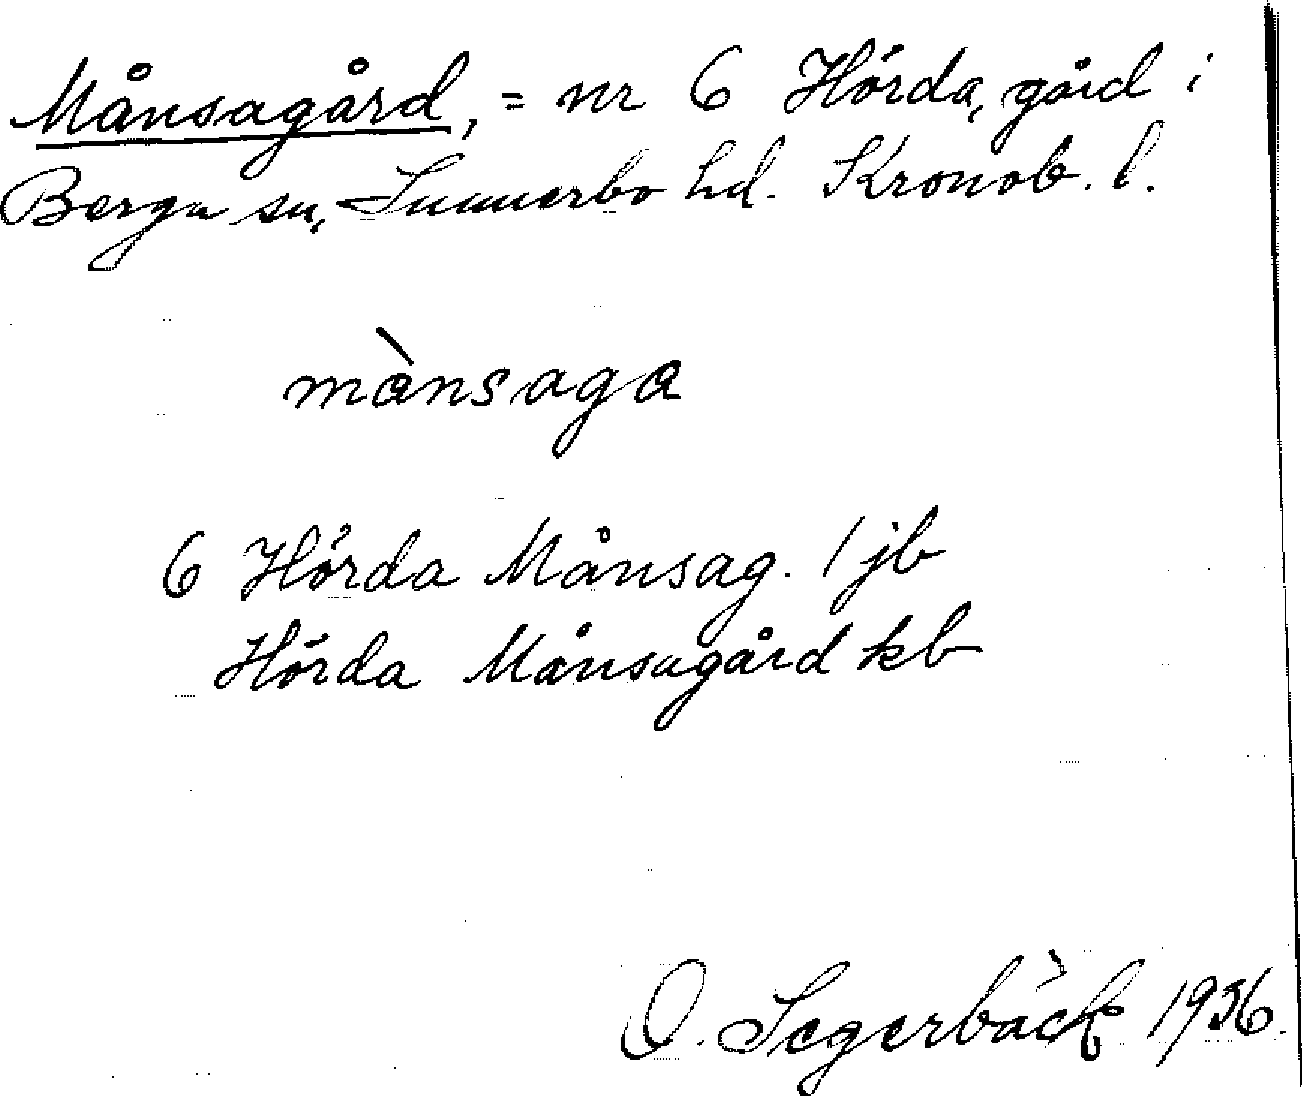 Månsagård, = nr 6 Hörda, gård i
Berga sn, Sunnerbo hd. Kronob. l.
mànsaga
6 Hörda Månsag. 1 jb
Hörda Månsagård kb
O. Segerbäck 1936.